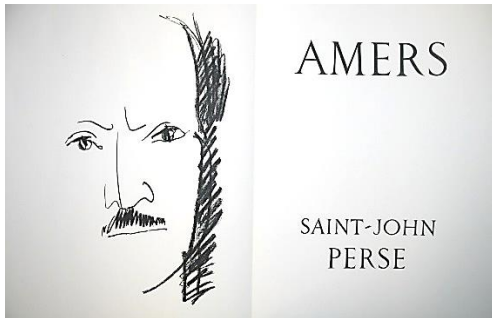 AMERS
SAINT-JOHN
PERSE